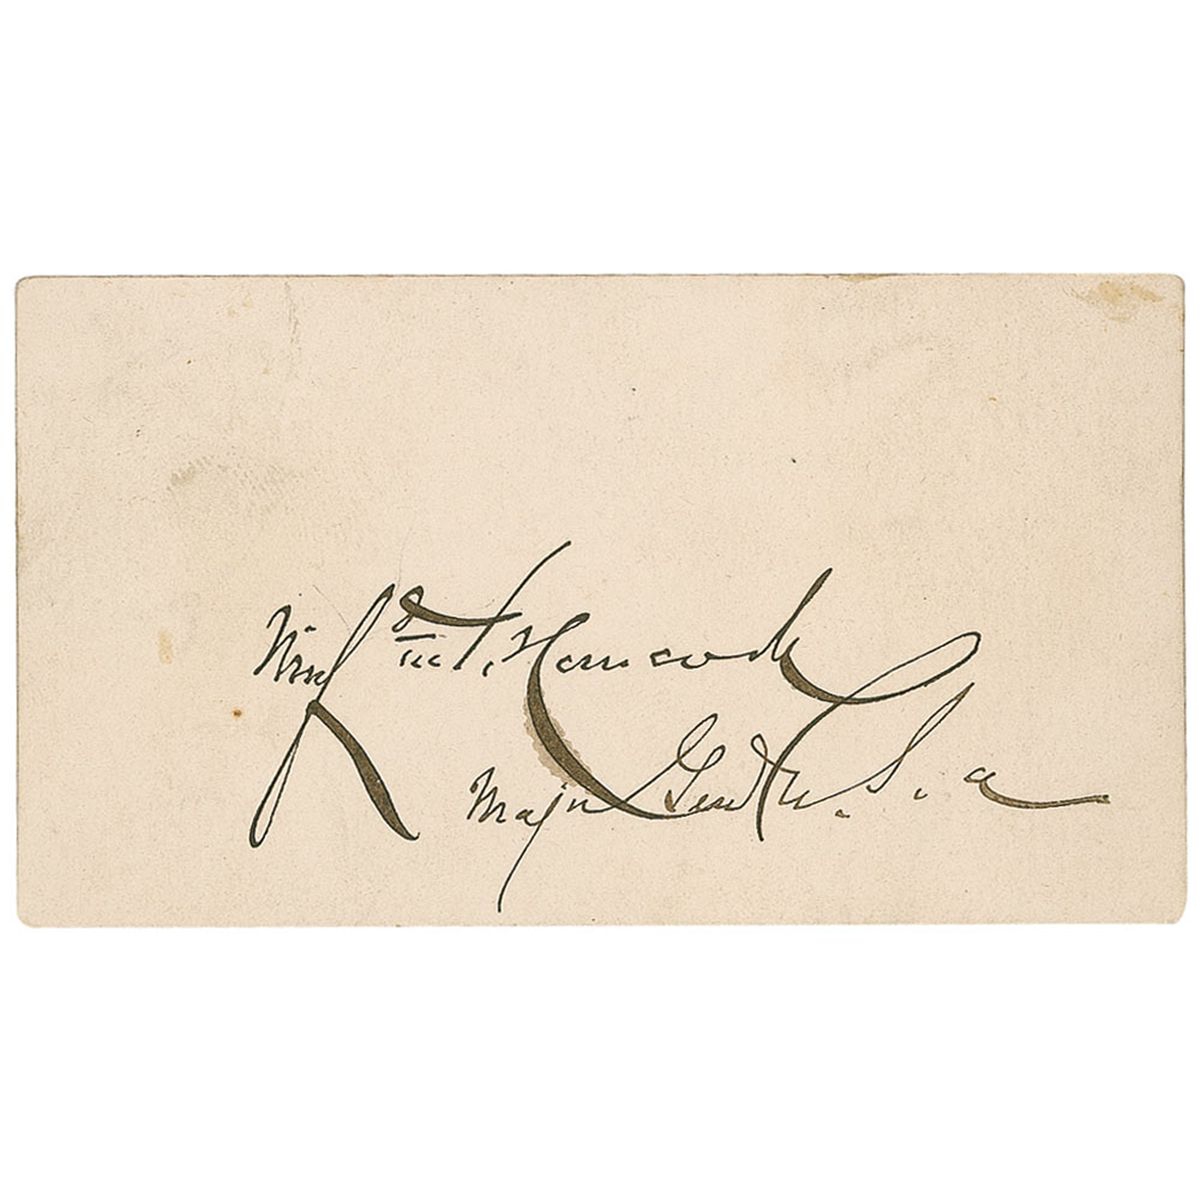 Winfd S. Hancock
Maj Genl U. S. a